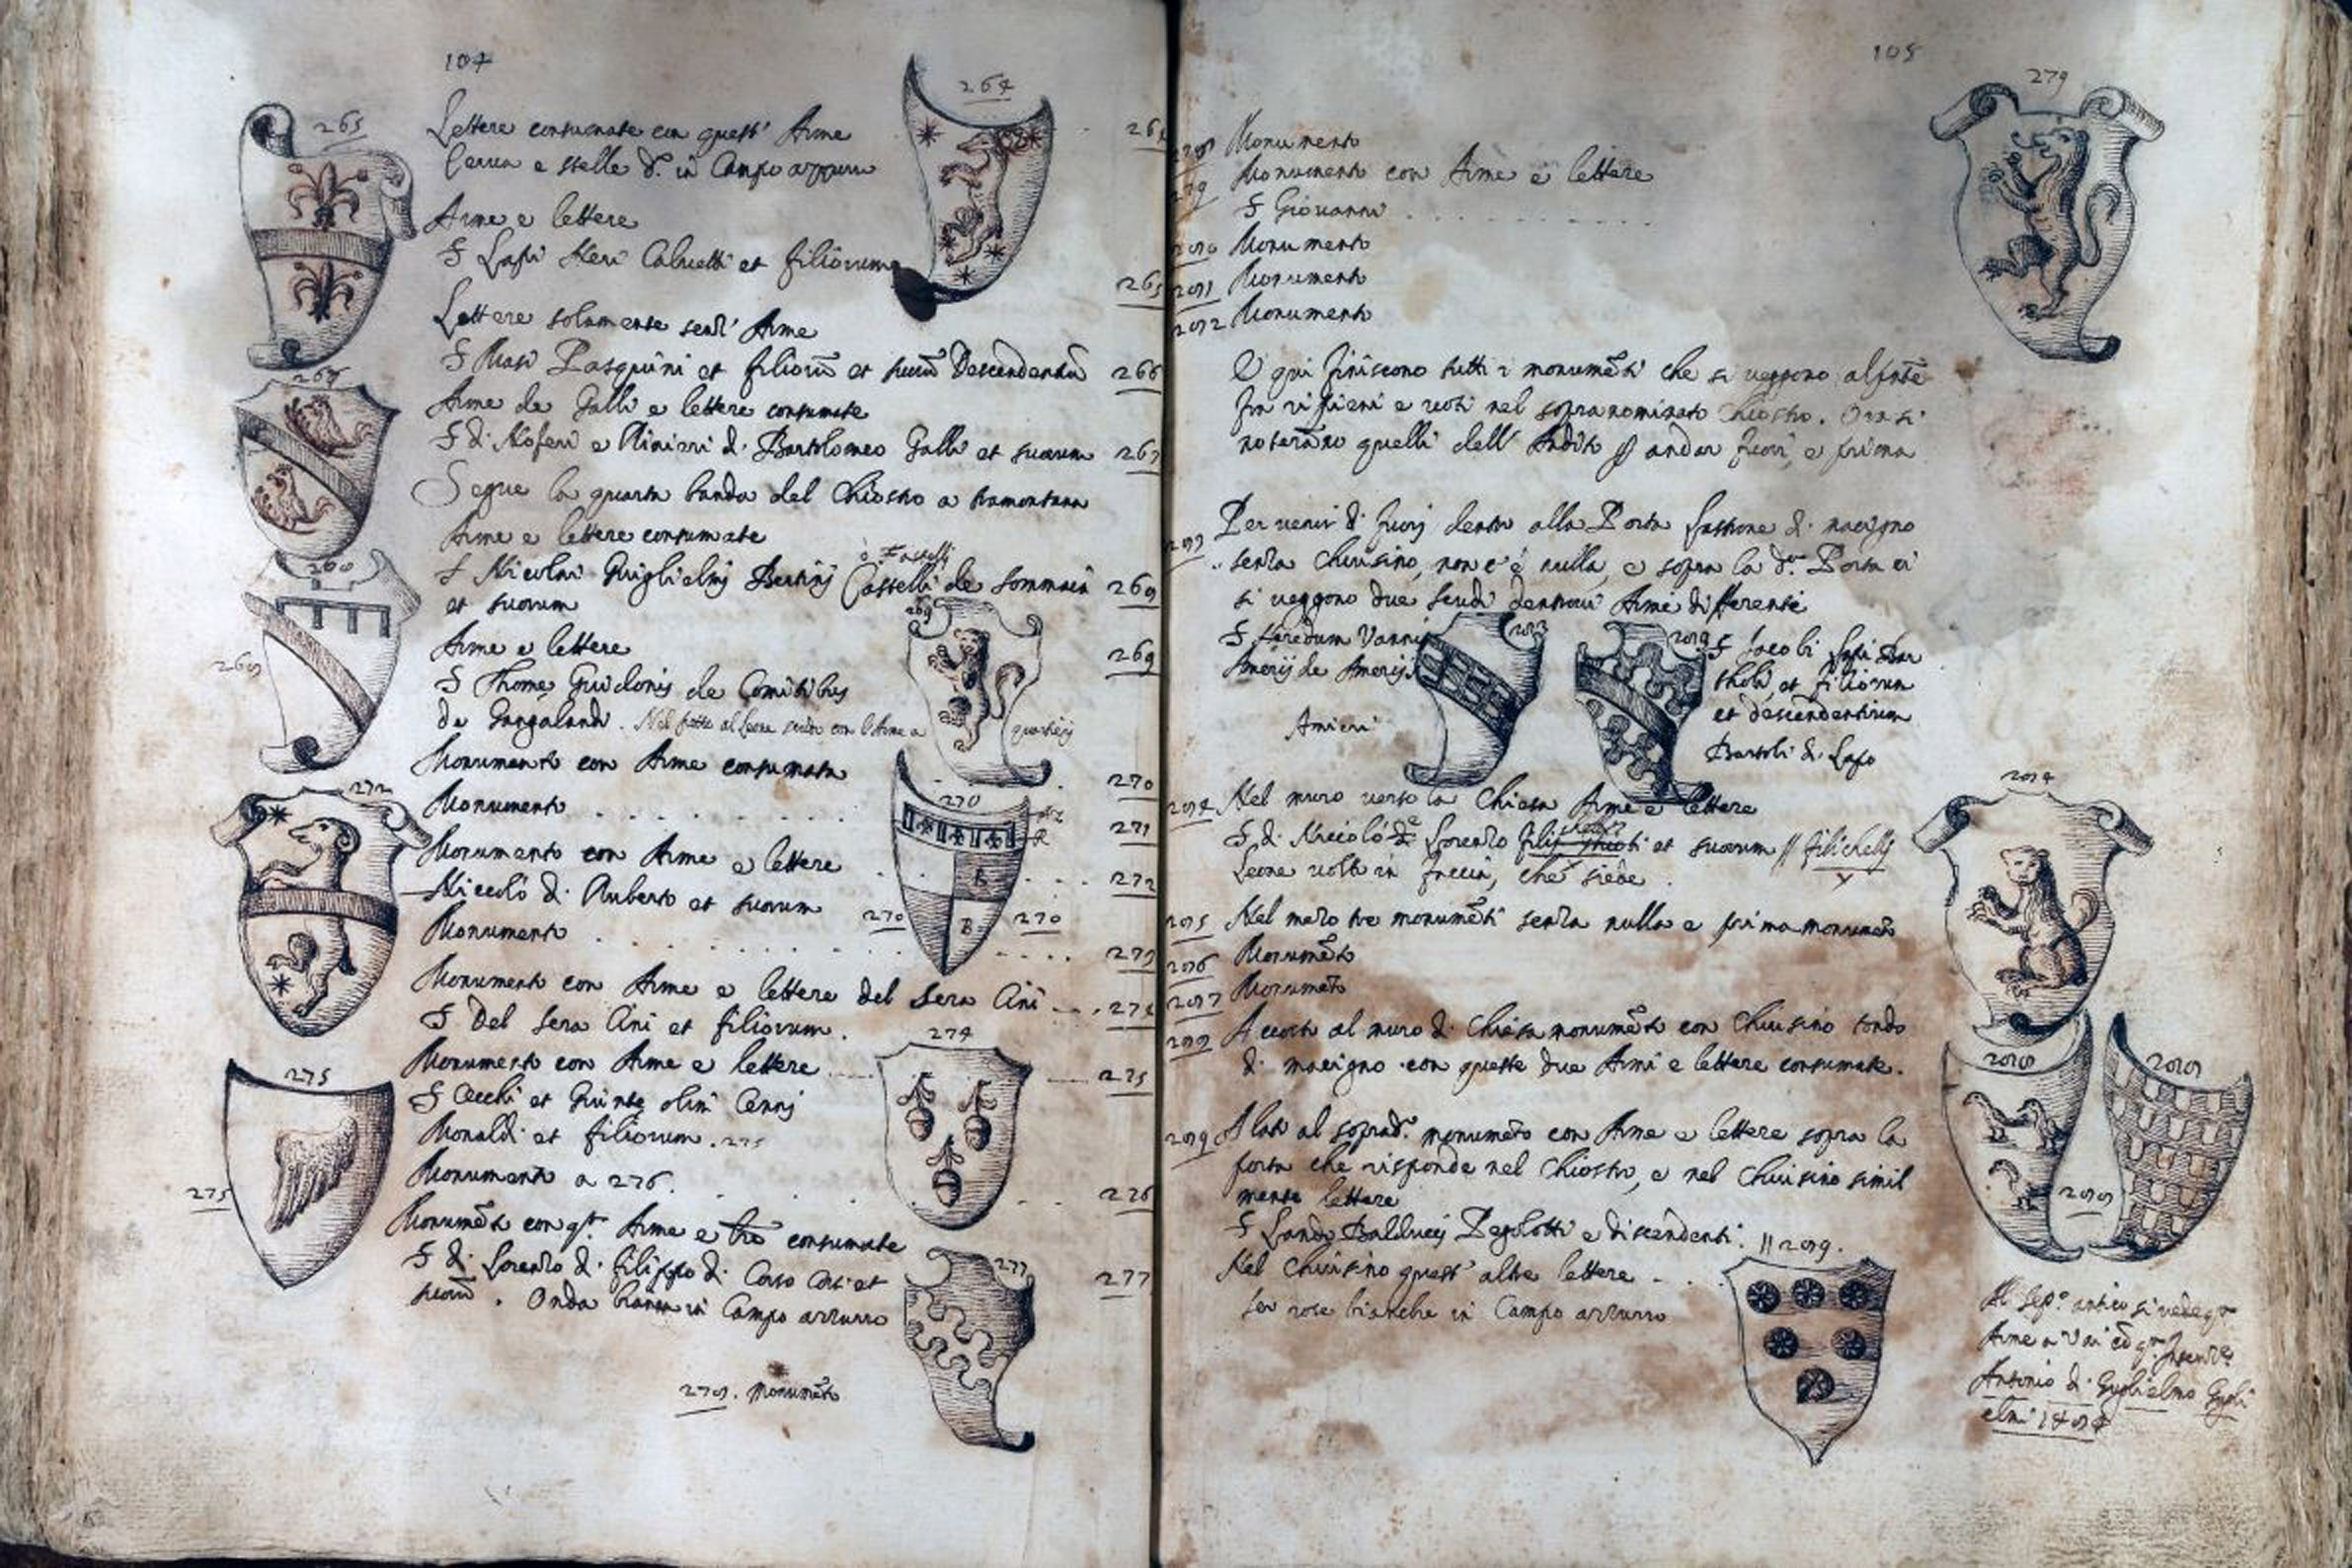 104
264
265
Lettere consumate con quest' Arme
e stelle d. in Campo azzurro
Arme e lettere
S Lapi Neri et filiorum
265
Lettere solamente senz' Arme
S Masi Pasquini et filiorũ et suorũ Descendentiũ 266
267
Arme de Galli e lettere consumate
S di Noferi e di Bartolomeo Galli et suorum 267
Segue la quarta banda del Chiostro a tramontana
Arme e lettere consumate
ò
S Nicolai Guiglielmj Bertinj Castelli de Sommaia 268
et suorum
Arme e lettere
269
269
S Thome Guidonis de Comitibus
de Gangalandi. Nel petto al Leone scudo con l'Arme a quartieri
Monumento con Arme consumata 270
272
Monumento 271
270
Monumento con Arme e lettere 272
Niccolò di Ruberto et suorum
270 B 270
Monumento 273
Monumento con Arme e lettere del Sera Cini 274
S Del Sera Cini et filiorum.
274
Monumento con Arme e lettere 275
275
S Cecchi et olim Cennj
Monaldi et filiorum. 275
275
Monumento a 276. 276
Monumẽto con qta Arme e consumate
S di Lorenzo di Filippo di Corso et 277
277
suorũ. Onda bianca in Campo azzurro
278. Monumẽto
105
279
Monumento
279 Monumento con Arme e lettere
S Giovanni
280 Monumento
281 Monumento
282 Monumento
E qui finiscono tutti i monumẽti che si veggono al
ripieni e voti nel sopranominato Chiostro. Ora si
noterãno quelli dell' Andito p andar fuori, e prima
283 Per venir di fuorj dentro alla Porta di macigno
senza Chiusino, non c'è nulla, e sopra la da Porta vi
si veggono due scudi dentrovi Armi differenti
S Heredum Vannis
Amerij de Amerijs
Amieri
283
283
S Jacobi Lapi Bar
tholi, et filiorum
et descendentium
Bartoli di Lapo
284
284 Nel muro verso la Chiesa Arme e lettere
S di Niccolò di Lorenzo et suorum // filichelli
Leone volto in faccia, che siede.
285 Nel mezo tre monumẽti senza nulla e prima monumẽto
286 Monumẽto
287 Monumẽto
288 Accosto al muro di Chiesa monumẽto con Chiusino tondo
di macigno con queste due Armi e lettere consumate.
288
288
288
289 A lato al soprado monumẽto con Arme e lettere sopra la
porta che risponde nel Chiostro, e nel Chiusino simil
mente lettere
S Lando Balduccj Pegolotti e discendenti. // 289.
Nel Chiusino quest' altre lettere
Sei rose bianche in Campo azzurro
Al sepo antico si vede qta
Arme a Vai
Antonio di Guglielmo Gugli
elmi 1484